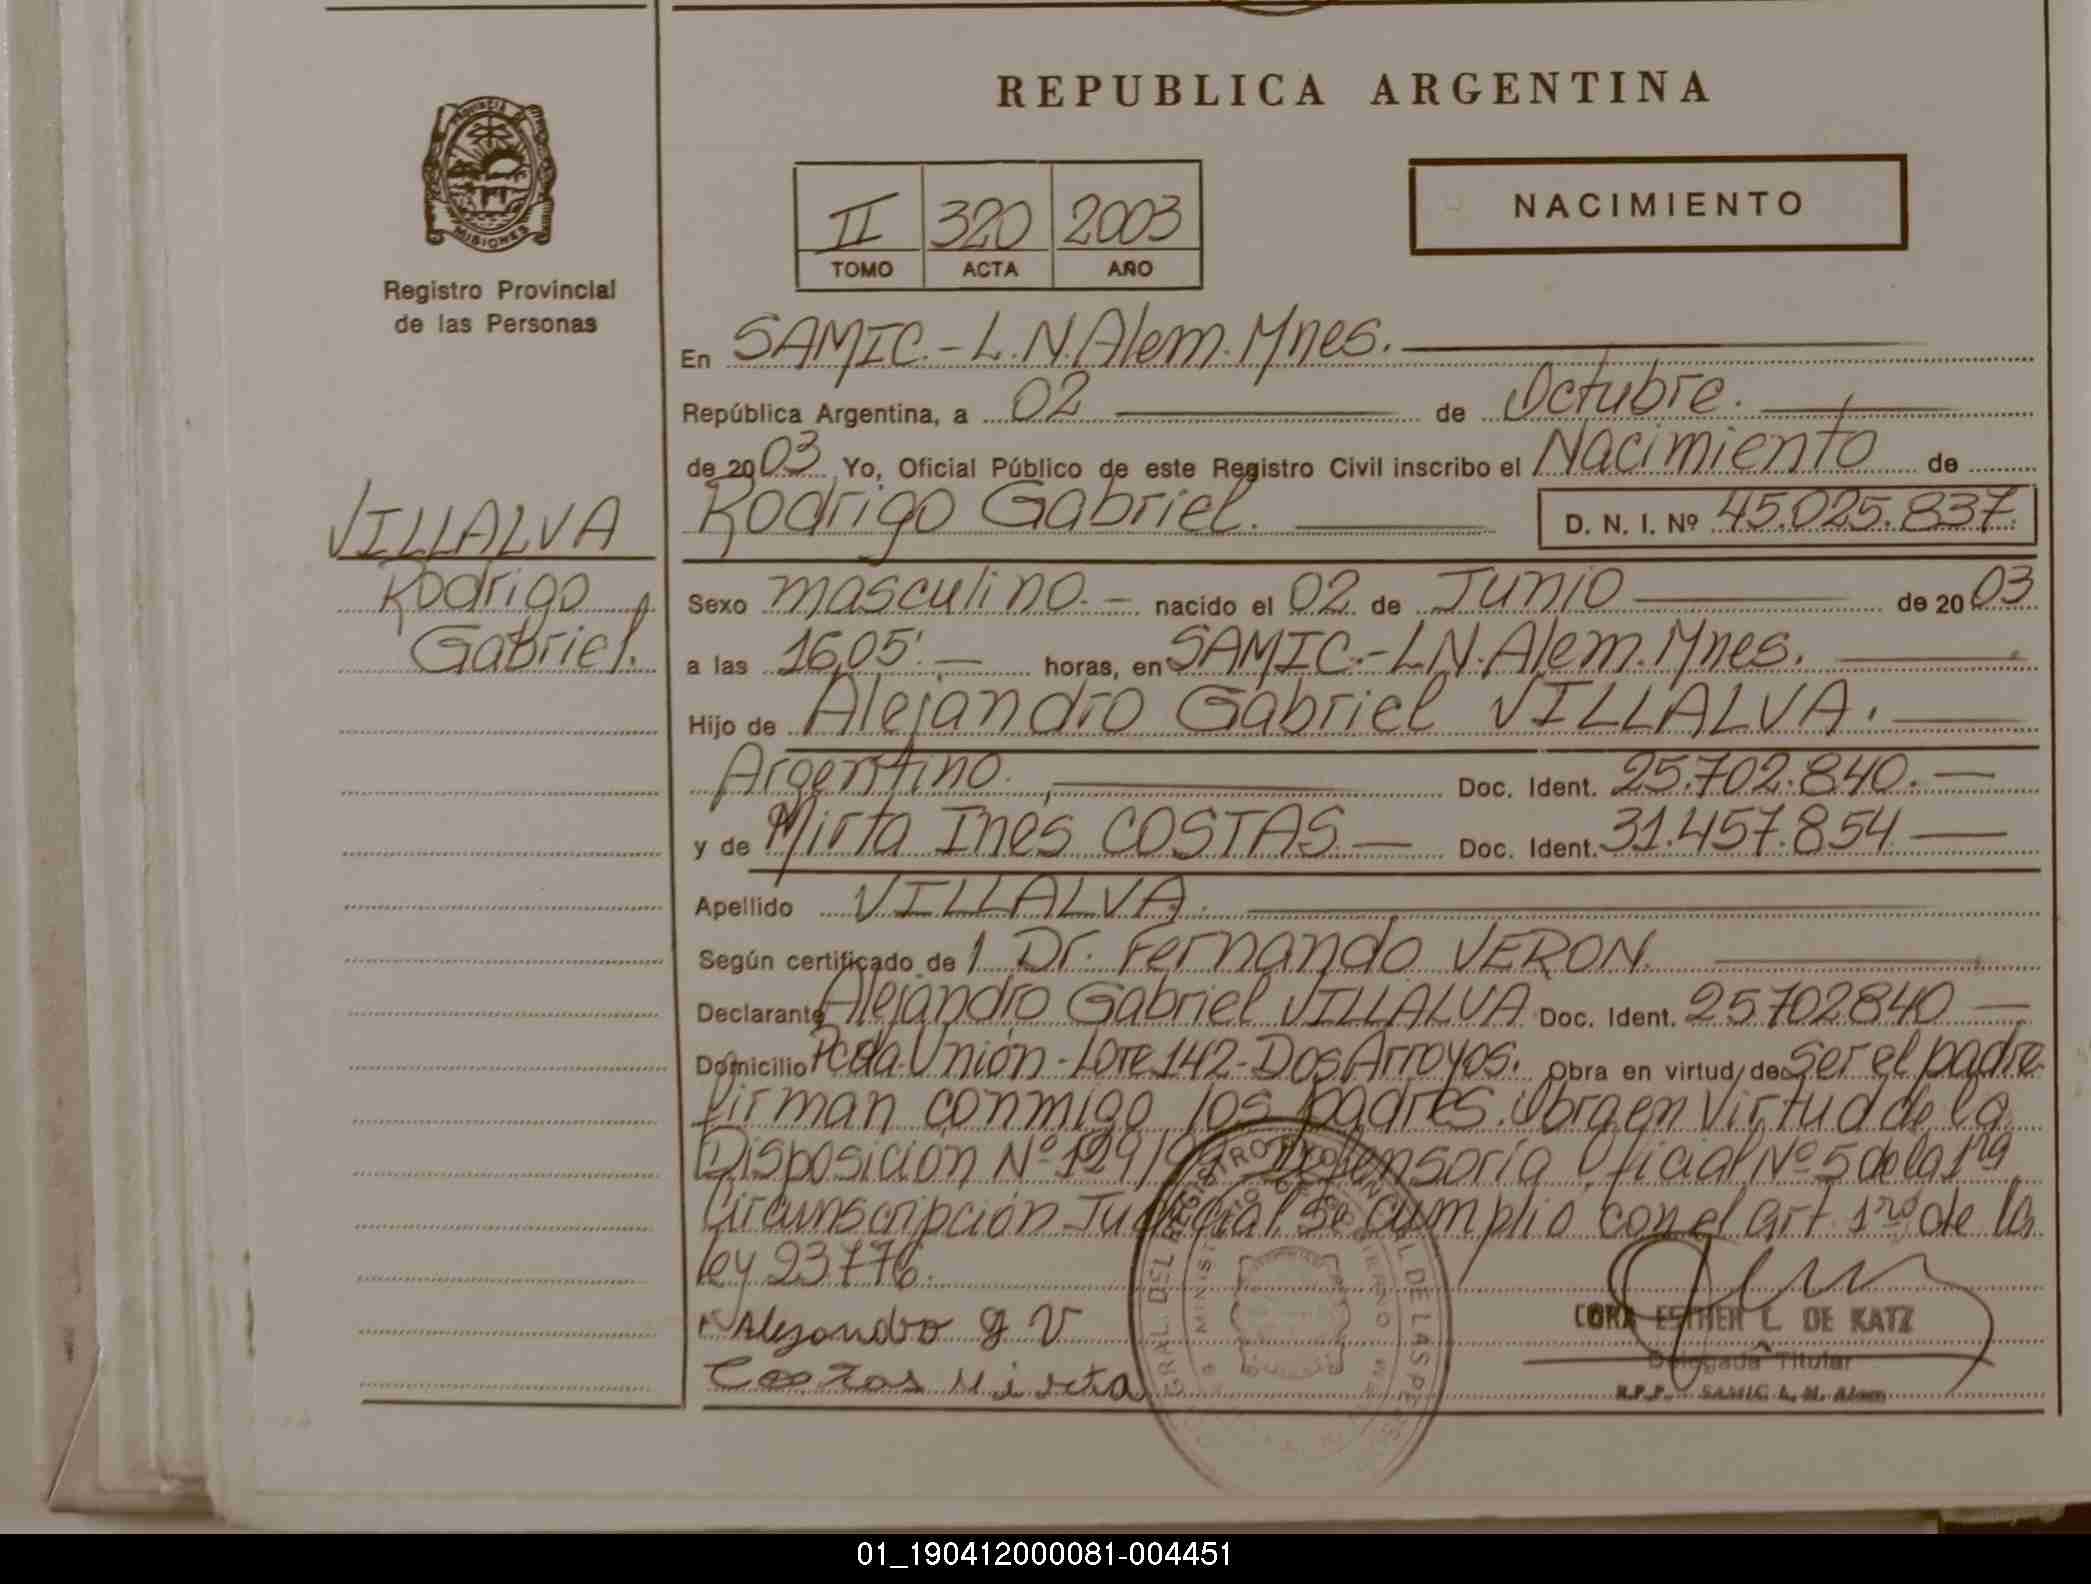 REPUBLICA ARGENTINA
PROVINCIA DE
MISIONES
Registro Provincial
de las Personas
II 320 2003
TOMO ACTA AÑO
NACIMIENTO
En SAMIC.-L.N.Alem.Mnes.
República Argentina, a 02 de Octubre.
de 2003 Yo, Oficial Público de este Registro Civil inscribo el Nacimiento de
Rodrigo Gabriel. D. N. I. Nº 45.025.837.
VILLALVA
Rodrigo
Gabriel.
Sexo masculino.- nacido el 02 de Junio de 2003
a las 16,05'.- horas, en SAMIC.-LN.Alem.Mnes.
Hijo de Alejandro Gabriel VILLALVA.
Argentino. Doc. Ident. 25.702.840.-
y de Mirta Ines COSTAS Doc. Ident. 31.457.854
Apellido VILLALVA.
Según certificado de 1 Dr. Fernando VERON.
Declarante Alejandro Gabriel VILLALVA Doc. Ident. 25702840
Domicilio Pcda.Unión-Lote 142-Dos Arroyos. Obra en virtud de ser el padre
firman conmigo los padres. Obra en Virtud de la
Disposición Nº 129/ Defensoría Oficial Nº 5 de la 1ra
Circunscripción Judicial. Se cumplio con el art. 1ro de la
ley 23776.
Alejandro g V
Costas Mirta
CORA ESTHER L. DE KATZ
Delegada Titular
R.P.P. SAMIC L. N. Alem
01_190412000081-004451